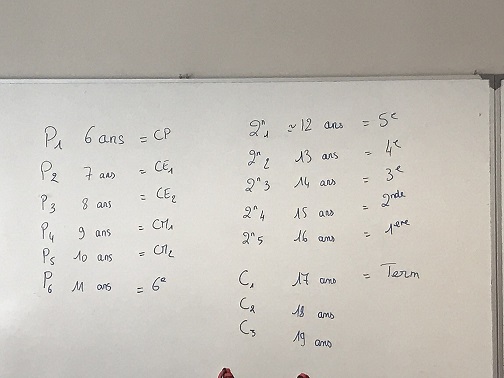 P1 6 ans = CP
P2 7 ans = CE1
P3 8 ans = CE2
P4 9 ans = CM1
P5 10 ans = CM2
P6 11 ans = 6e
2n1 ≈ 12 ans = 5e
2n2 13 ans = 4e
2n3 14 ans = 3e
2n4 15 ans = 2nde
2n5 16 ans = 1ere
C1 17 ans = Term
C2 18 ans
C3 19 ans